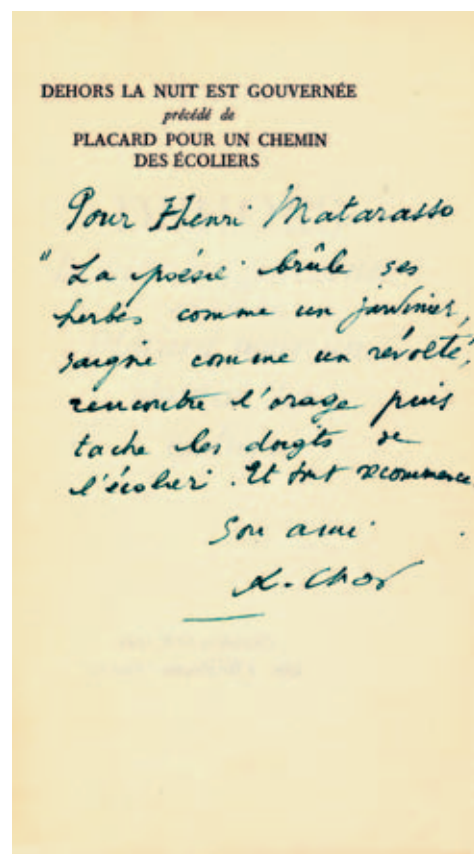 DEHORS LA NUIT EST GOUVERNÉE
précédé de
PLACARD POUR UN CHEMIN
DES ÉCOLIERS
Pour Henri Matarasso
" La poésie brûle ses
herbes comme un jardinier,
saigne comme un révolté,
rencontre l'orage puis
tache les doigts de
l'écolier. Et tout recommence
Son ami
R. Char